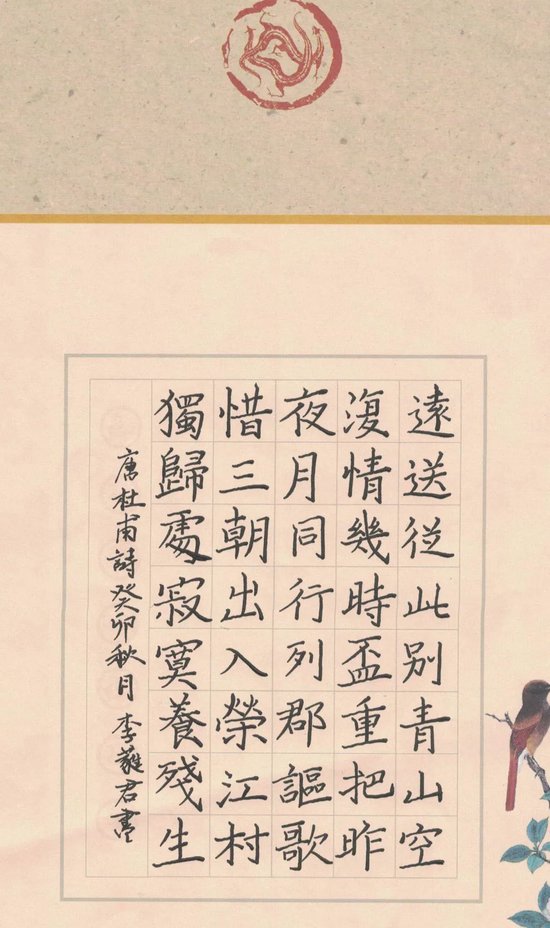 遠送從此別青山空
復情幾時盃重把昨
夜月同行列郡謳歌
惜三朝出入榮江村
獨歸處寂寞養殘生
唐杜甫詩癸卯秋月 李君書